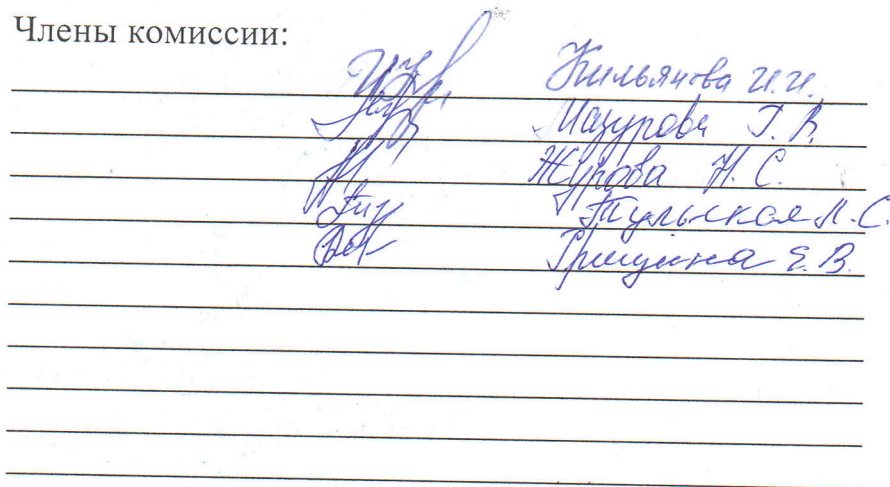 Члены комиссии:
Кильянова И.И.
Мазурова Т.В.
Журова Н.С.
Тульская Л.С.
Грищина Е.В.